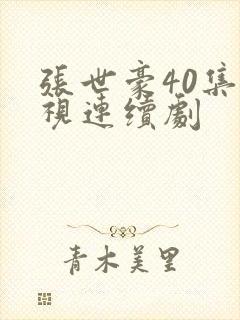 張世豪40集
視連續劇
青木美里